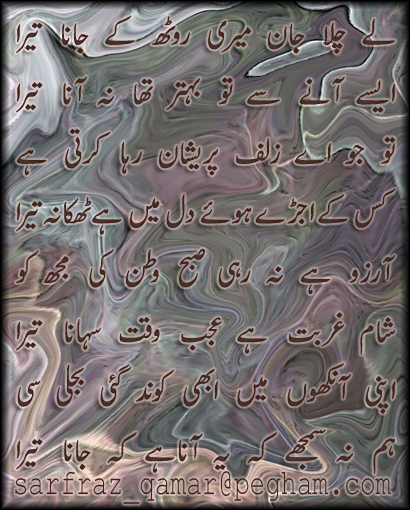 لے چلا جان میری روٹھ کے جانا تیرا
ایسے آنے سے تو بہتر تھا نہ آنا تیرا
تو جو اے زلف پریشان رہا کرتی ہے
کس کے اجڑے ہوئے دل میں ہے ٹھکانہ تیرا
آرزو ہے نہ رہی صبح وطن کی مجھ کو
شام غربت ہے عجب وقت سہانا تیرا
اپنی آنکھوں میں ابھی کوند گئی بجلی سی
ہم نہ سمجھے کہ یہ آنا ہے کہ جانا تیرا
sarfraz_qamar@pegham.com